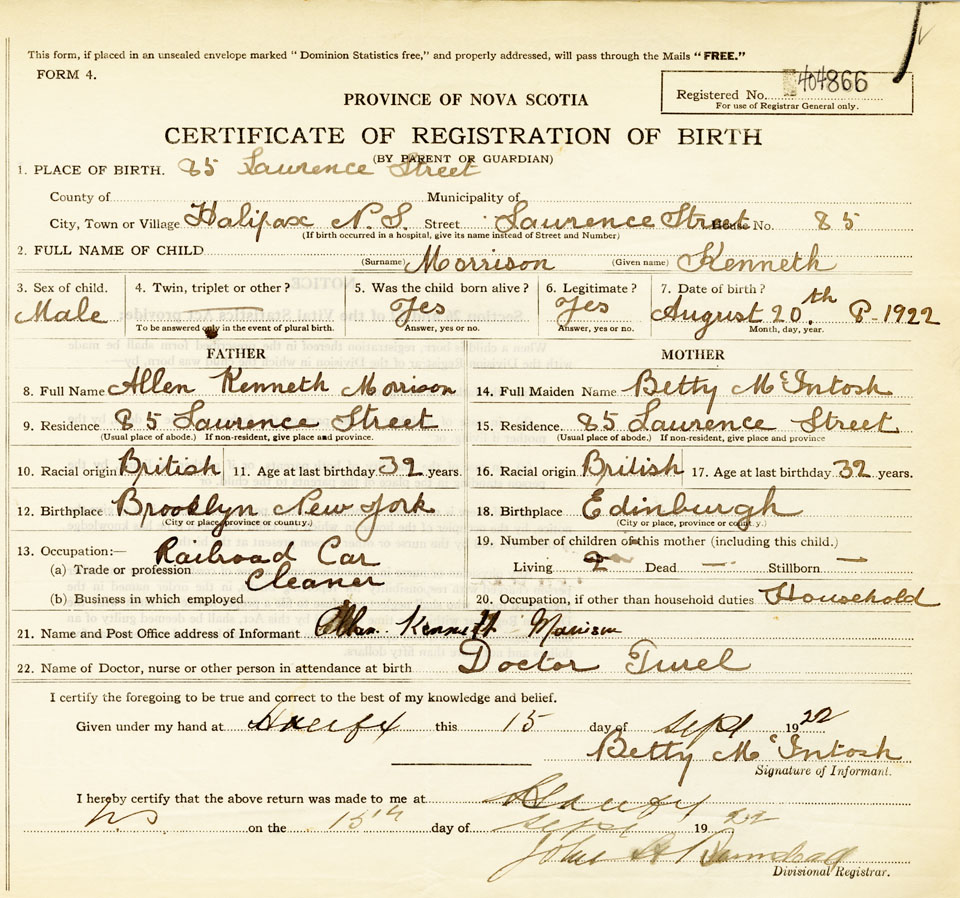 This form, if placed in an unsealed envelope marked "Dominion Statistics free," and properly addressed, will pass through the Mails "FREE."
FORM 4.
Registered No. 404866
For use of Registrar General only.
PROVINCE OF NOVA SCOTIA
CERTIFICATE OF REGISTRATION OF BIRTH
(BY PARENT OR GUARDIAN)
1. PLACE OF BIRTH. 85 Lawrence Street
County of Municipality of
City, Town or Village Halifax N.S. Street Lawrence Street House No. 85
(If birth occurred in a hospital, give its name instead of Street and Number)
2. FULL NAME OF CHILD (Surname) Morrison (Given name) Kenneth
3. Sex of child. 4. Twin, triplet or other? 5. Was the child born alive? 6. Legitimate? 7. Date of birth?
Male Yes Yes August 20th 1922
To be answered only in the event of plural birth. Answer, yes or no. Answer, yes or no. Month, day, year.
FATHER MOTHER
8. Full Name Allen Kenneth Morrison 14. Full Maiden Name Betty McIntosh
9. Residence 85 Lawrence Street 15. Residence. 85 Lawrence Street
(Usual place of abode.) If non-resident, give place and province. (Usual place of abode.) If non-resident, give place and province
10. Racial origin British 11. Age at last birthday 39 years. 16. Racial origin British 17. Age at last birthday 32 years.
12. Birthplace Brooklyn New York 18. Birthplace Edinburgh
(City or place, province or country.) (City or place, province or country.)
13. Occupation:— 19. Number of children of this mother (including this child.)
(a) Trade or profession Railroad Car Cleaner Living 2 Dead — Stillborn —
(b) Business in which employed 20. Occupation, if other than household duties Household
21. Name and Post Office address of Informant Allan Kenneth Morrison
22. Name of Doctor, nurse or other person in attendance at birth Doctor Turel
I certify the foregoing to be true and correct to the best of my knowledge and belief.
Given under my hand at Halifax this 15 day of Sept 1922
Betty McIntosh
Signature of Informant.
I hereby certify that the above return was made to me at Halifax
NS on the 15th day of Sept 1922
John
Divisional Registrar.